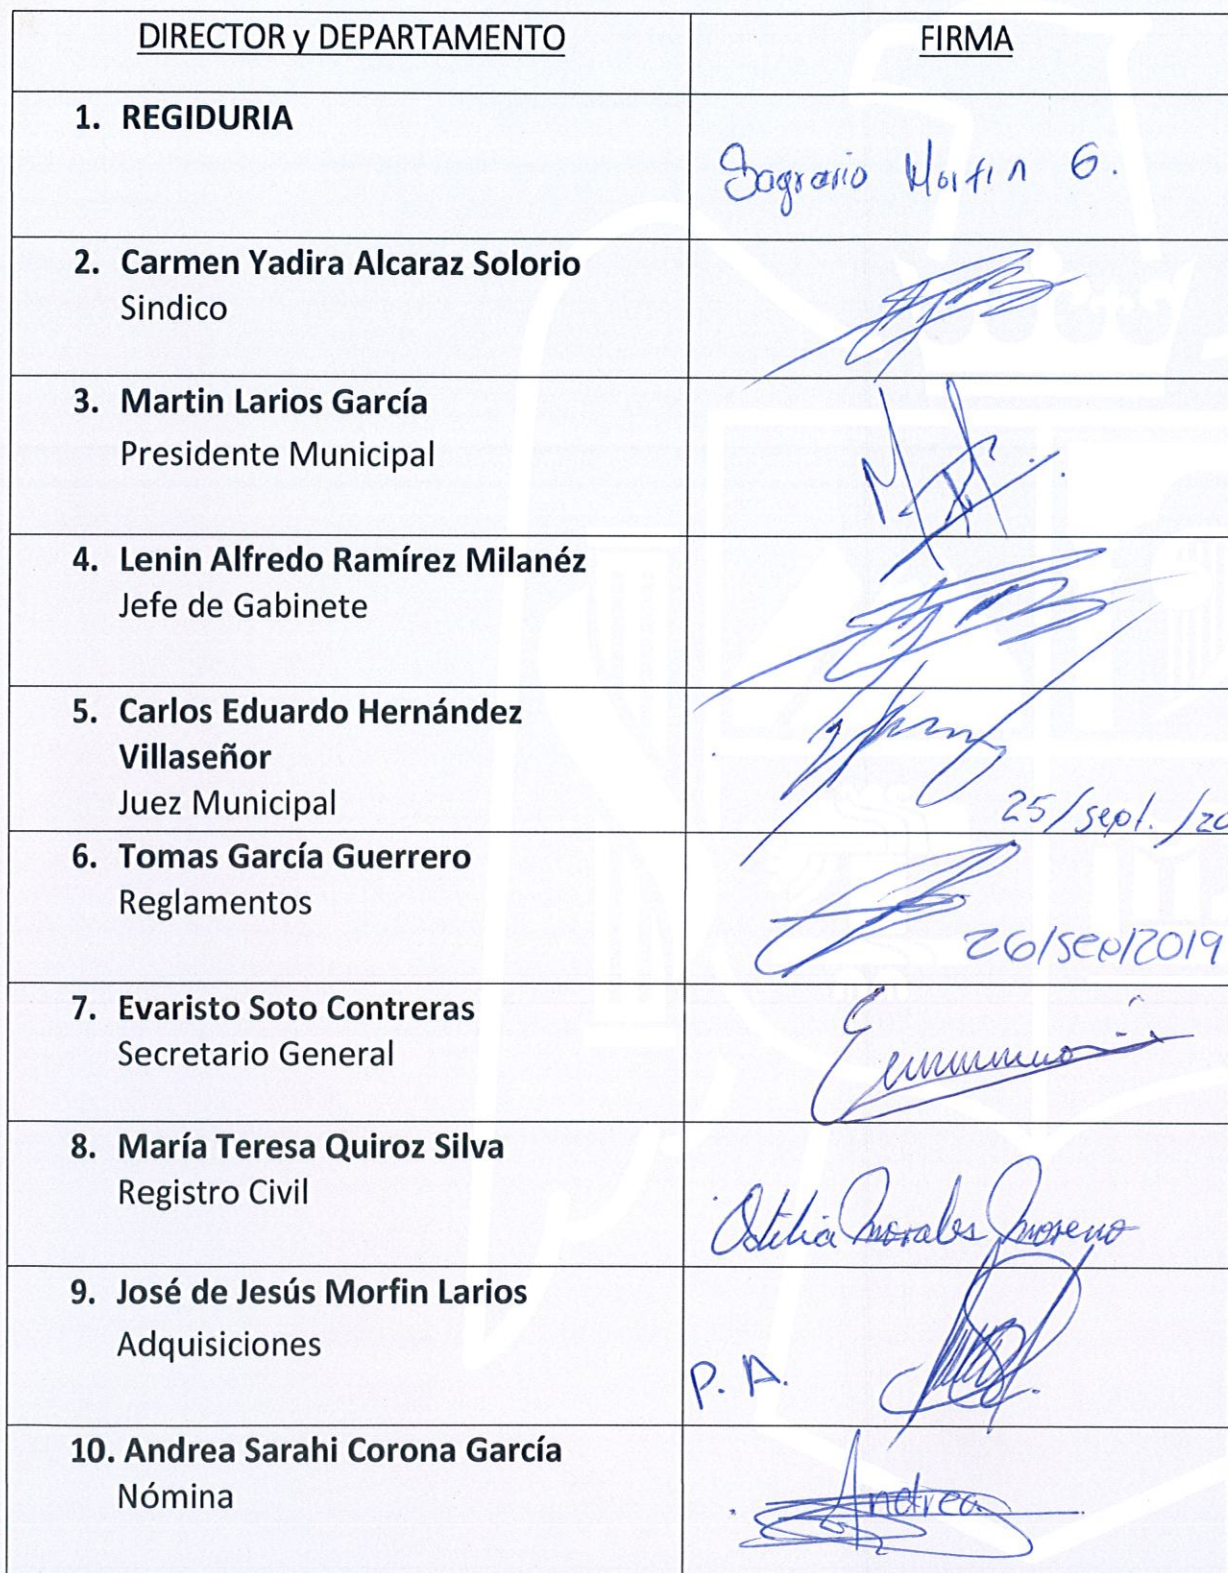 DIRECTOR y DEPARTAMENTO FIRMA
1. REGIDURIA
Sagrario Morfin G.
2. Carmen Yadira Alcaraz Solorio
Sindico
3. Martin Larios García
Presidente Municipal
4. Lenin Alfredo Ramírez Milanéz
Jefe de Gabinete
5. Carlos Eduardo Hernández
Villaseñor
Juez Municipal
25/sept./20
6. Tomas García Guerrero
Reglamentos
26/sep/2019
7. Evaristo Soto Contreras
Secretario General
8. María Teresa Quiroz Silva
Registro Civil
Otilia Morales Moreno
9. José de Jesús Morfin Larios
Adquisiciones
P. A.
10. Andrea Sarahi Corona García
Nómina
Andrea